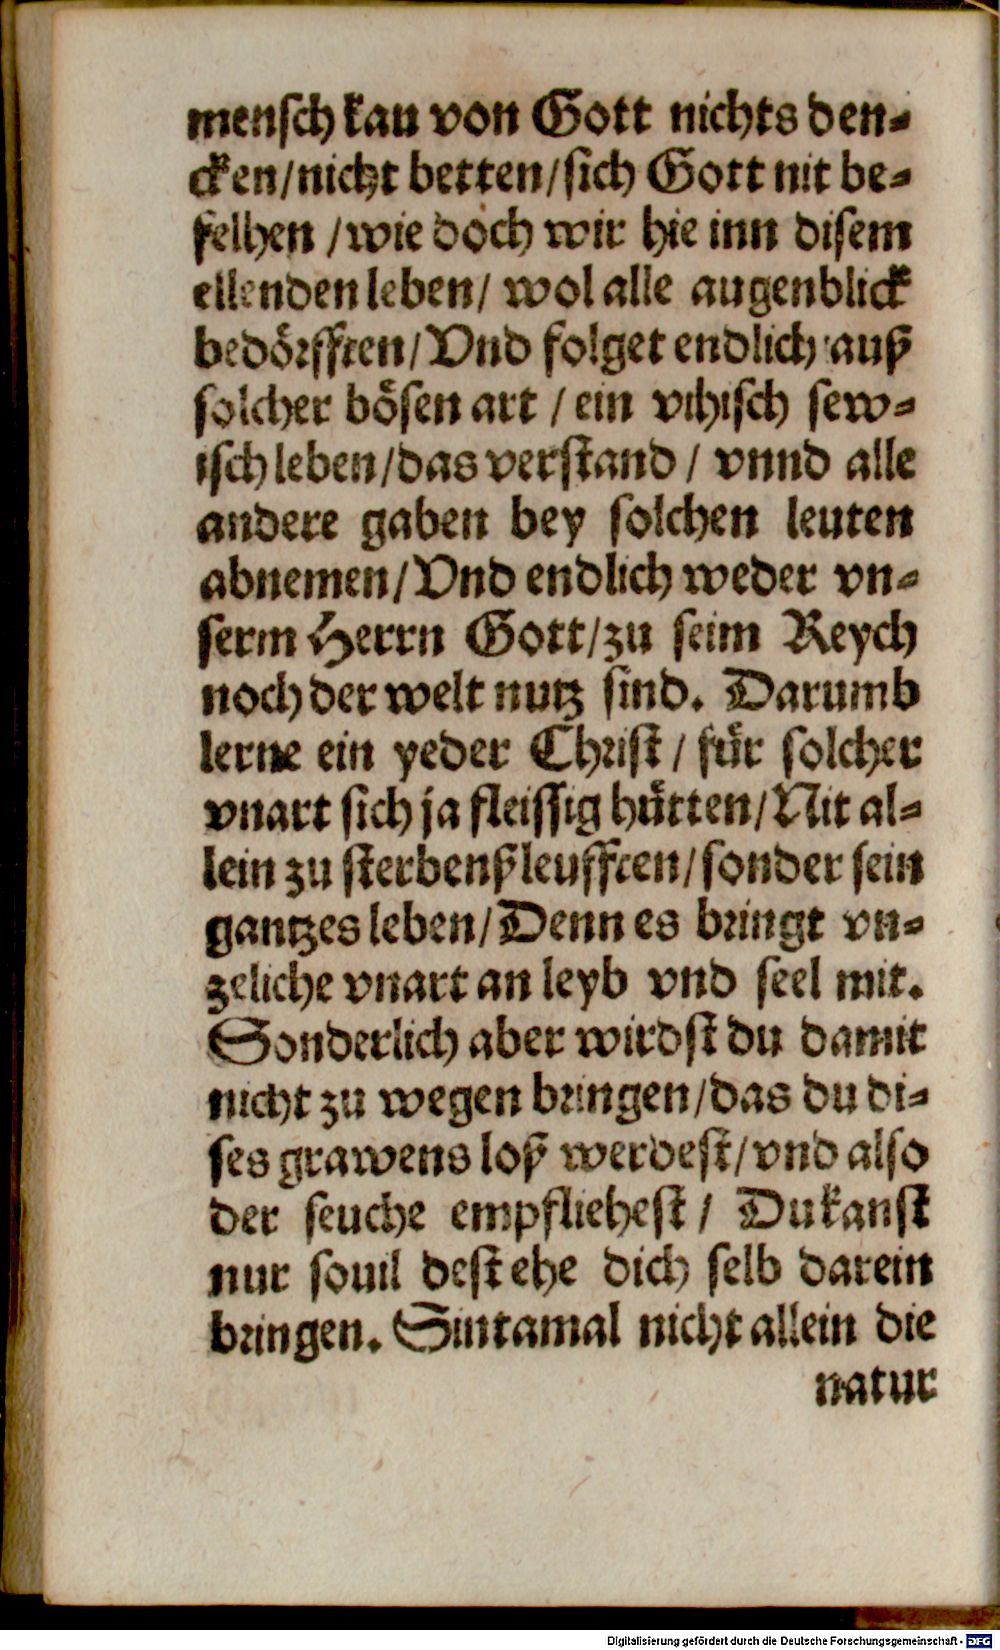 mensch kan von Gott nichts den⸗
cken/nicht betten/sich Gott nit be⸗
felhen /wie doch wir hie inn disem
ellenden leben/ wol alle augenblick
bedörfften/Vnd folget endlich auß
solcher bösen art / ein vihisch sew⸗
isch leben/das verstand / vnnd alle
andere gaben bey solchen leuten
abnemen/Vnd endlich weder vn⸗
serm Herrn Gott/zu seim Reych
noch der welt nutz sind. Darumb
lerne ein yeder Christ / für solcher
vnart sich ja fleissig hütten/Nit al⸗
lein zu sterbenßleufften/sonder sein
gantzes leben/Denn es bringt vn⸗
zeliche vnart an leyb vnd seel mit.
Sonderlich aber wirdst du damit
nicht zu wegen bringen/das du di⸗
ses grawens loß werdest/vnd also
der seuche empfliehest / Du kanst
nur souil dest ehe dich selb darein
bringen. Sintamal nicht allein die
natur
Digitalisierung gefördert durch die Deutsche Forschungsgemeinschaft - DFG